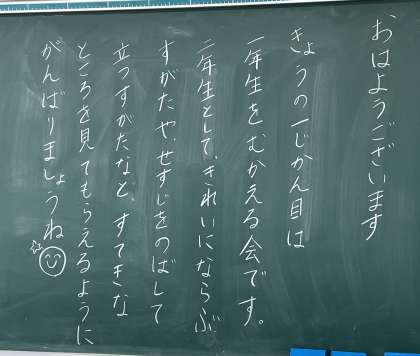 おはようございます
きょうの一じかん目は
一年生をむかえる会です。
二年生として、きれいにならぶ
すがたや、せすじをのばして
立つすがたなど、すてきな
ところを見てもらえるように
がんばりましょうね